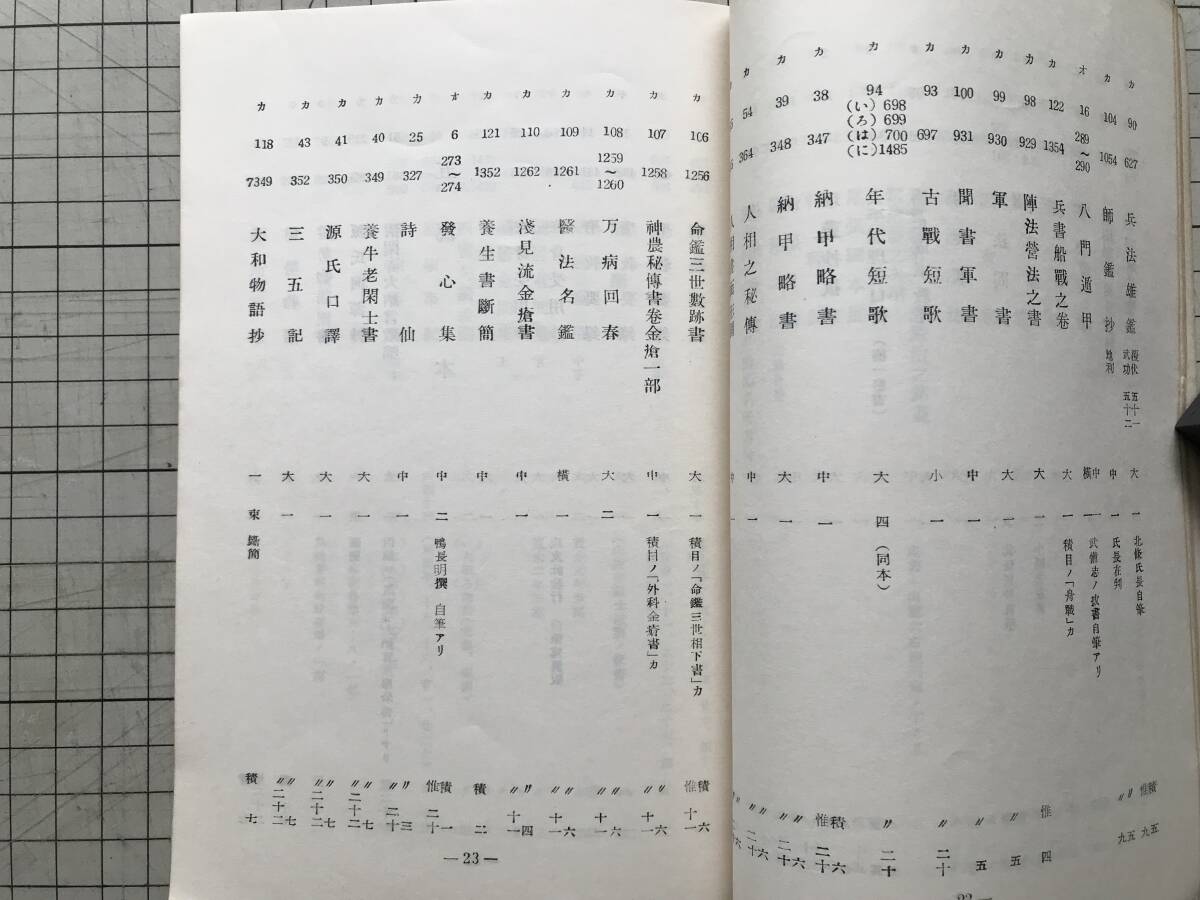 カ 90 627 兵法雄鑑 復伏 五十一 武功 五十二 大 一 北條氏長自筆 惟積 九五
カ 104 1054 師鑑抄 地利 中 一 氏長在判 〃〃 九五
オ 16 289～290 八門遁甲 中横 一 武備志ノ抜書自筆アリ
カ 122 1354 兵書船戰之卷 大 一 積目ノ「舟戰」カ
カ 98 929 陣法營法之書 大 一 惟 四
カ 99 930 軍書 大 一 〃 五
カ 100 931 聞書軍書 中 一 〃 五
カ 93 697 古戰短歌 小 一 〃 二十
カ 94 (い)698 (ろ)699 (は)700 (に)1485 年代短歌 大 四 (同本) 〃 二十
カ 38 347 納甲略書 中 一 惟積 二十六
カ 39 348 納甲略書 大 一 〃〃 二十六
カ 54 364 人相之秘傳 中 一 〃〃 二十六
カ 106 1256 命鑑三世數跡書 大 一 積目ノ「命鑑三世相下書」カ 惟積 十一六
カ 107 1258 神農秘傳書卷金瘡一部 中 一 積目ノ「外科金瘡書」カ 〃〃 十一六
カ 108 1259～1260 万病回春 大 二 〃〃 十一六
カ 109 1261 醫法名鑑 横 一 〃〃 十一六
カ 110 1262 淺見流金瘡書 中 一 〃〃 十一四
カ 121 1352 養生書斷簡 中 一 積 二
オ 6 273～274 發心集 中 二 鴨長明撰 自筆アリ 惟積 二十一
カ 25 327 詩仙 中 一 〃〃 二十三
カ 40 349 養牛老閑士書 大 一 〃〃 二十二七
カ 41 350 源氏口譯 大 一 〃〃 二十二七
カ 43 352 三五記 大 一 〃〃 二十二七
カ 118 7349 大和物語抄 一束 斷簡 積 七
—23—